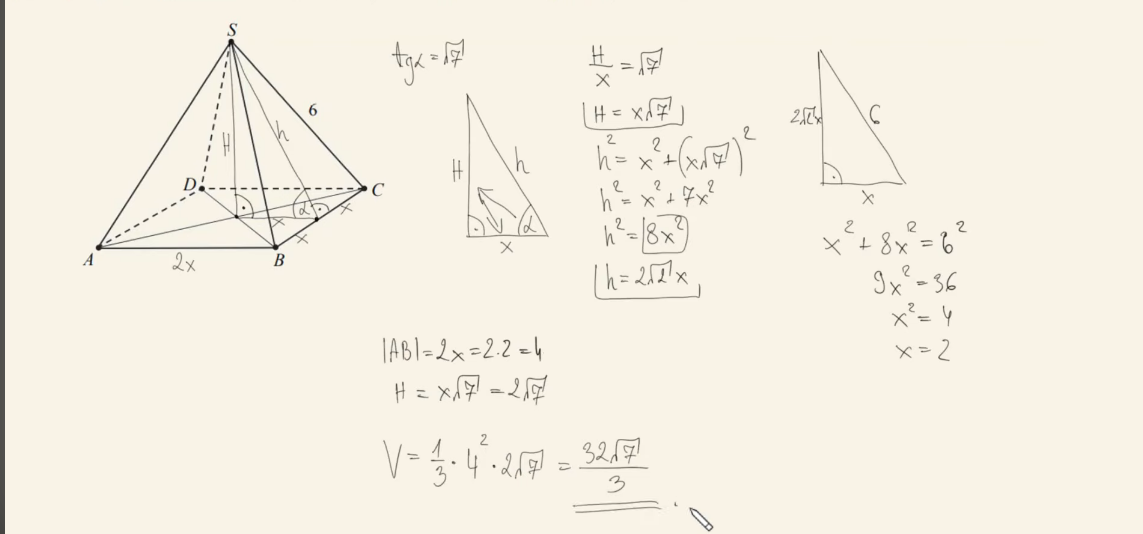 S
6
H
h
D
C
α
x
x
x
A
2x
B
tgα = √7
H
h
α
x
H/x = √7
H = x√7
h² = x² + (x√7)²
h² = x² + 7x²
h² = 8x²
h = 2√2 x
2√2x
6
x
x² + 8x² = 6²
9x² = 36
x² = 4
x = 2
|AB| = 2x = 2·2 = 4
H = x√7 = 2√7
V = 1/3 · 4² · 2√7 = 32√7/3